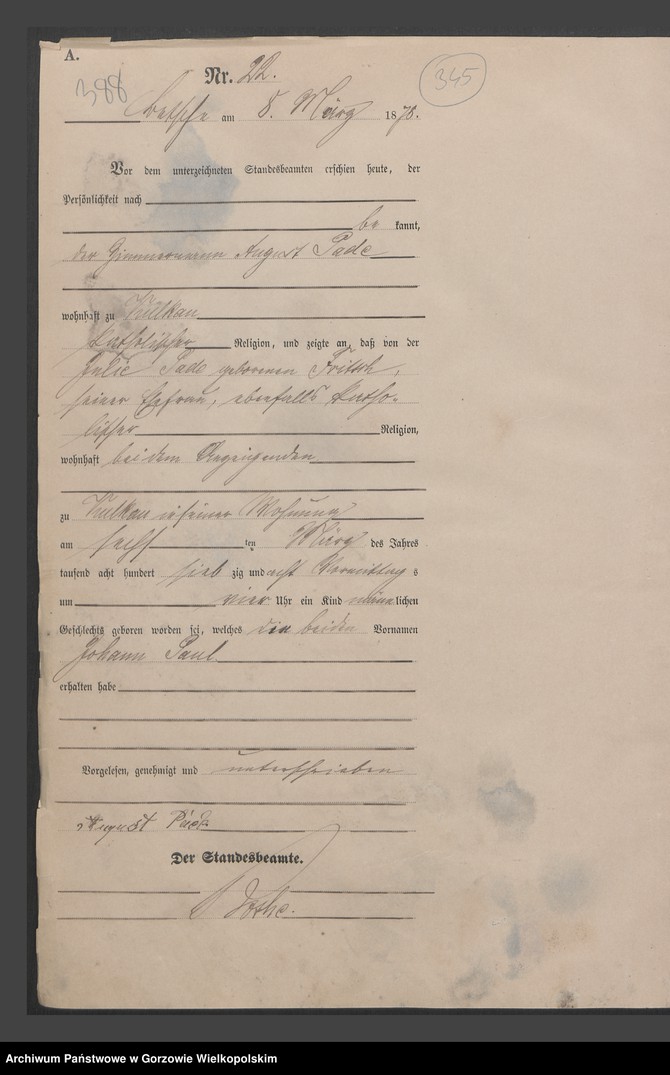 A.
388
345
Nr. 22.
Betsche am 8. März 1878.
Vor dem unterzeichneten Standesbeamten erschien heute, der
Persönlichkeit nach
be kannt,
der Zimmermann August Pade
wohnhaft zu Kulkau
katholischer Religion, und zeigte an, daß von der
Julie Pade geborenen Fritsch,
seiner Ehefrau, ebenfalls katho-
lischer Religion,
wohnhaft bei dem Anzeigenden
zu Kulkau in seiner Wohnung
am sechs ten März des Jahres
tausend acht hundert sieb zig und acht Vormittag s
um vier Uhr ein Kind männlichen
Geschlechts geboren worden sei, welches die beiden Vornamen
Johann Paul
erhalten habe
Vorgelesen, genehmigt und unterschrieben
August Pade
Der Standesbeamte.
Archiwum Państwowe w Gorzowie Wielkopolskim